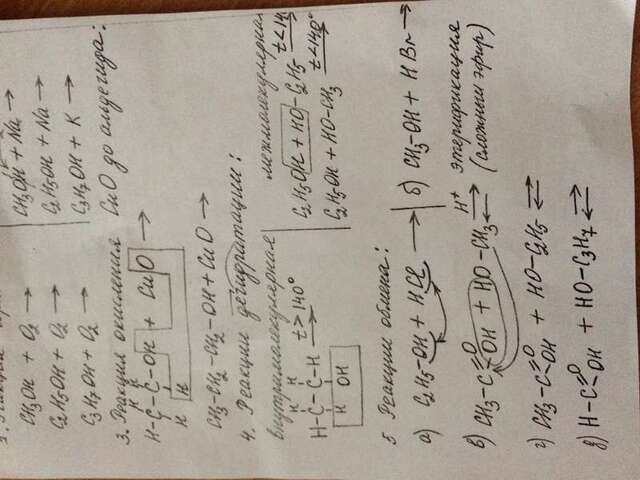 CH₃OH + O₂ → | CH₃OH + Na →
C₂H₅OH + O₂ → | C₂H₅OH + Na →
C₃H₇OH + O₂ → | C₃H₇OH + K →
3. Реакция окисления CuO до альдегида:
H H
H-C-C-OH + CuO →
H H
CH₃-CH₂-CH₂-OH + CuO →
4. Реакции дегидратации:
внутримолекулярная | межмолекулярная
H H
H-C-C-H t>140° → | C₂H₅OH + HO-C₂H₅ t<14 →
H OH | C₂H₅OH + HO-CH₃ t<140° →
5 Реакции обмена:
а) C₂H₅-OH + HCl → | б) CH₃-OH + HBr →
в) CH₃-C=O OH + HO-CH₃ H⁺ ⇄ этерификация
(сложный эфир)
г) CH₃-C=O OH + HO-C₂H₅ ⇄
д) H-C=O OH + HO-C₃H₇ ⇄